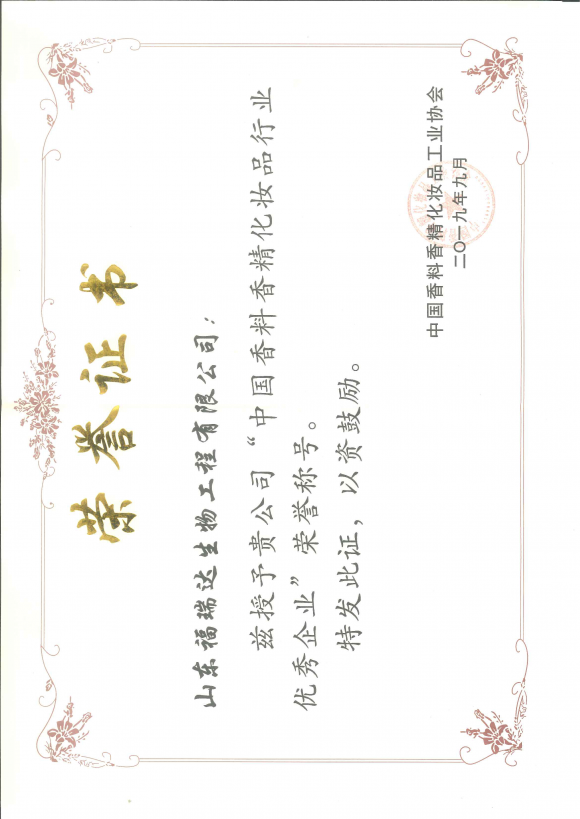 荣誉证书
山东福瑞达生物工程有限公司：
兹授予贵公司“中国香料香精化妆品行业
优秀企业”荣誉称号。
特发此证，以资鼓励。
中国香料香精化妆品工业协会
二〇一九年九月